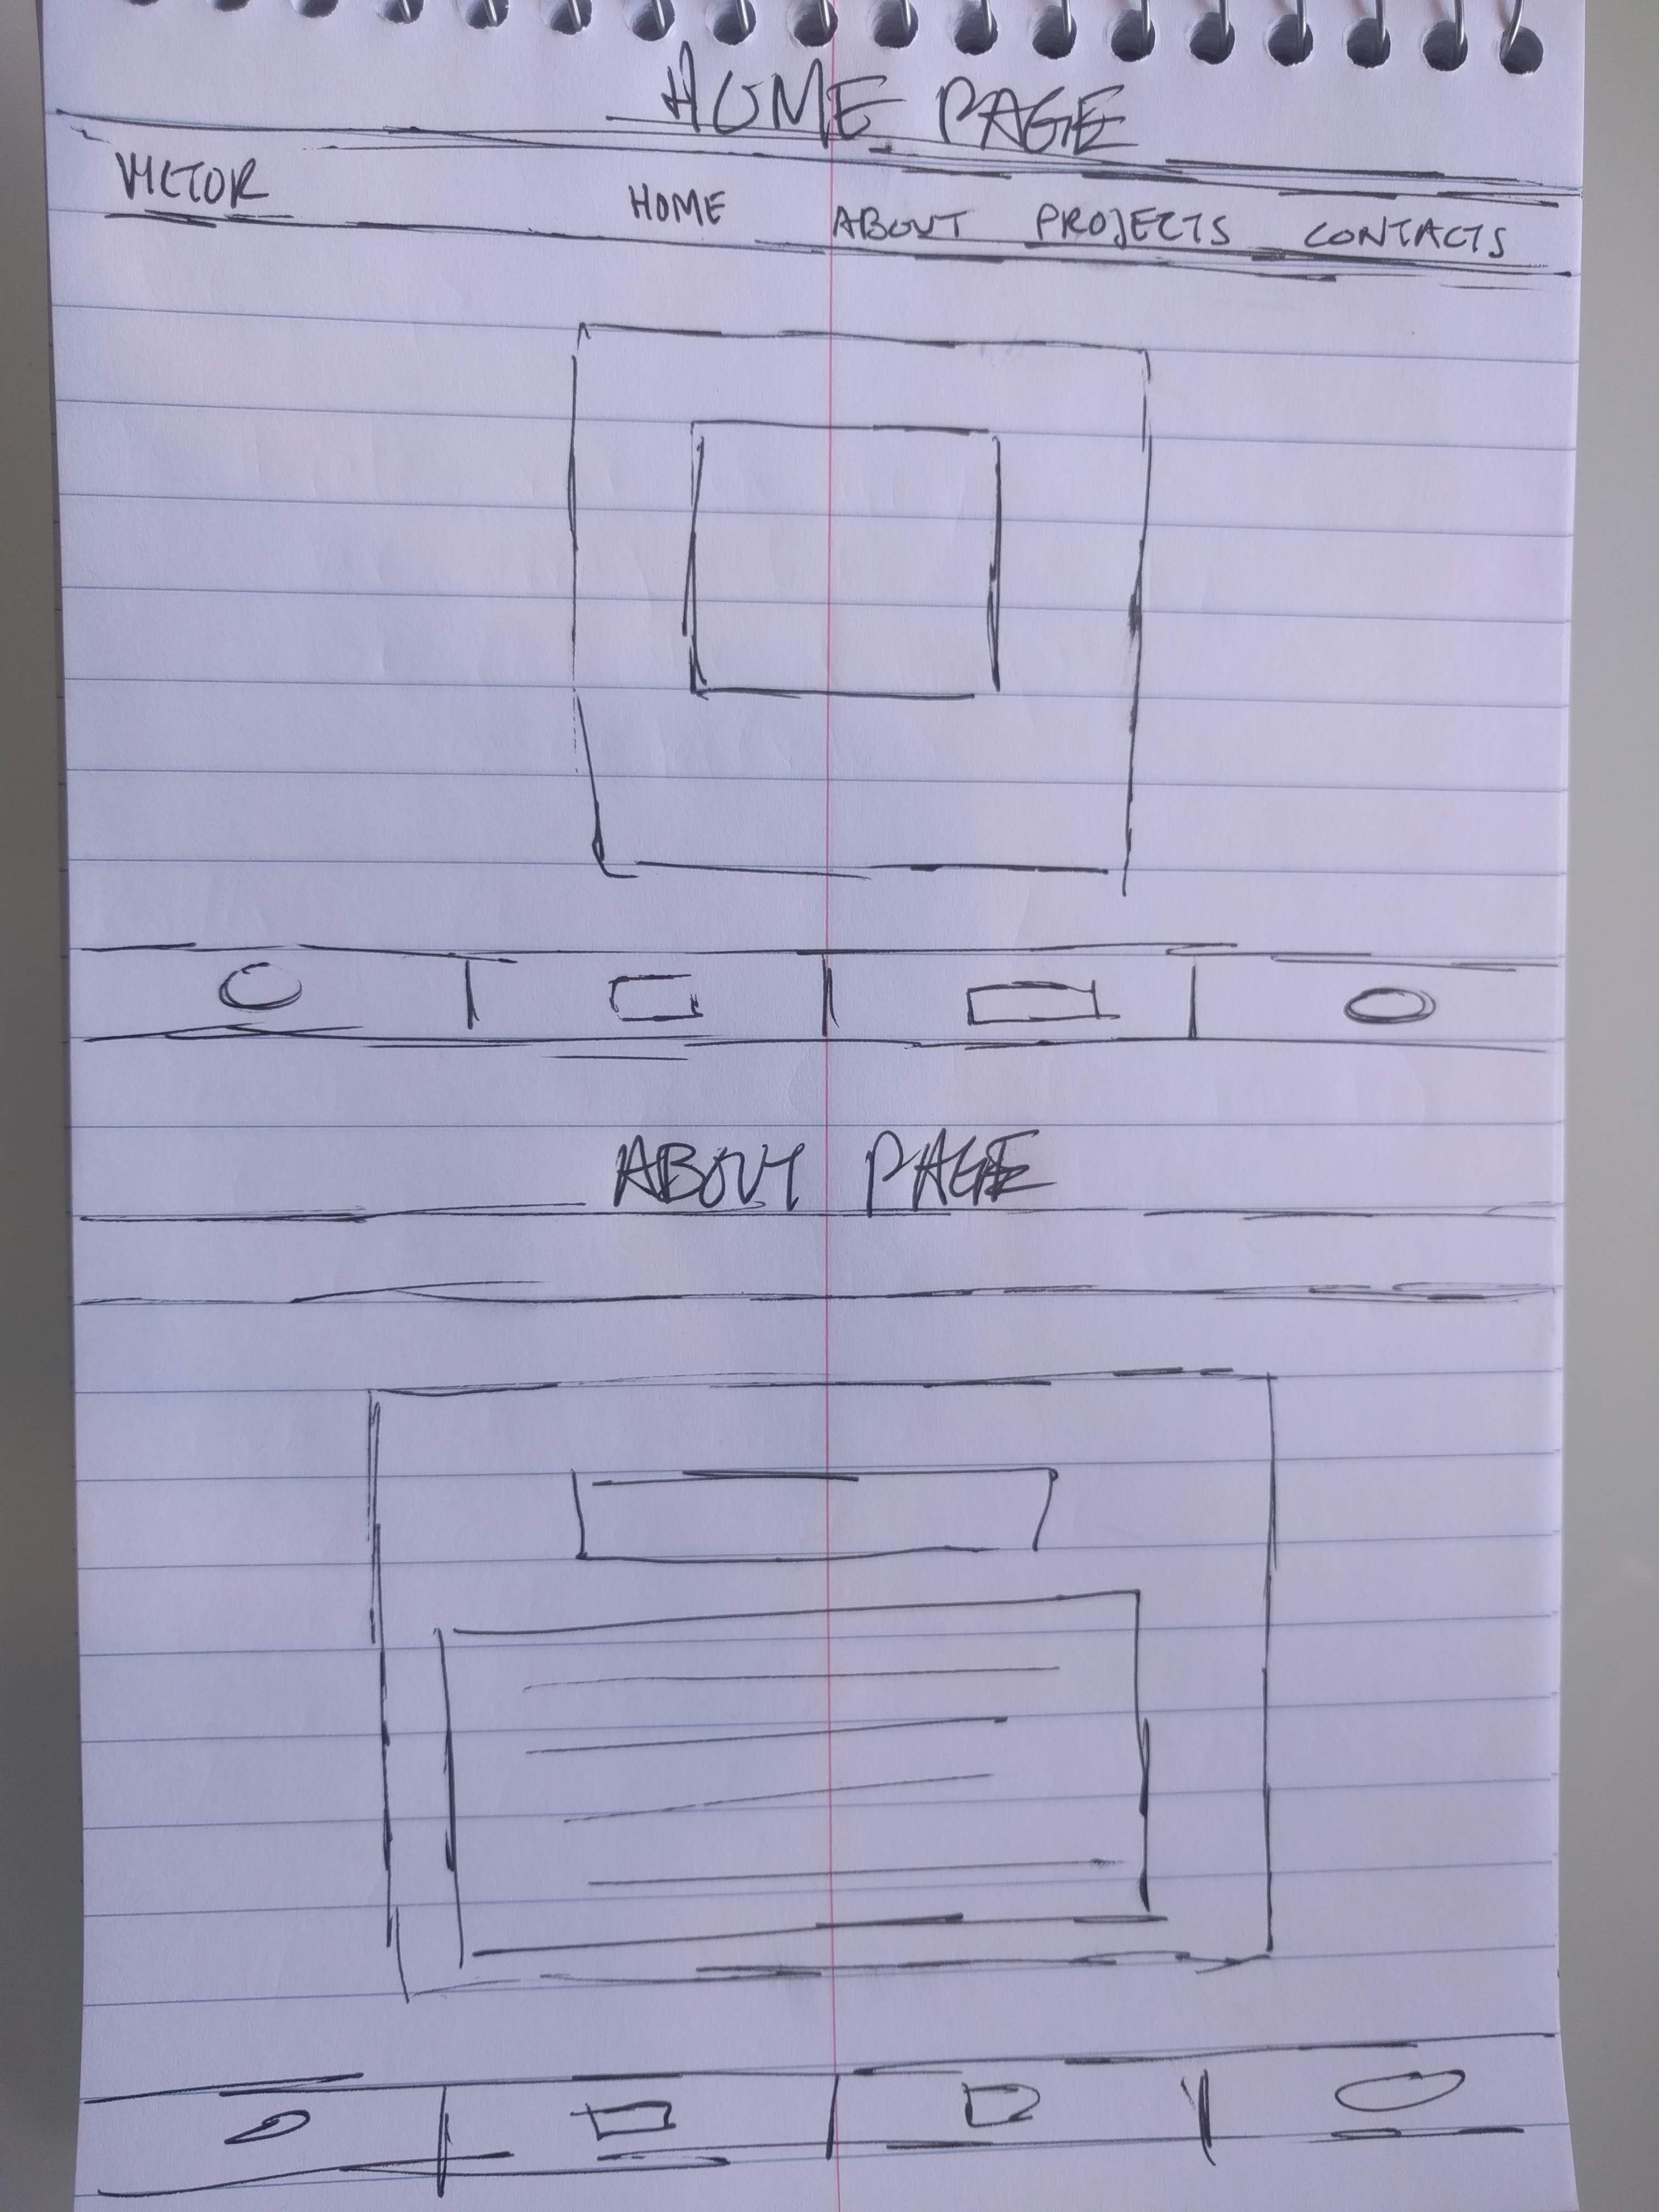 HOME PAGE
VICTOR HOME ABOUT PROJECTS CONTACTS
ABOUT PAGE